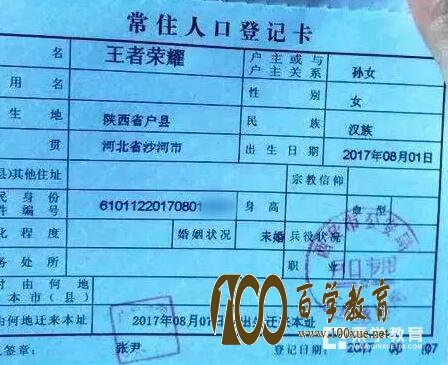 常住人口登记卡
名 王者荣耀 户主或与户主关系 孙女
用名 性别 女
生地 陕西省户县 民族 汉族
贯 河北省沙河市 出生日期 2017年08月01日
县)其他住址 宗教信仰
民身份件编号 61011220170801 身高 血型
化程度 婚姻状况 未婚 兵役状况
务处所 职业
时由何地本市(县)
由何地迁来本址 2017年08月07日 出 迁来本址
人签章: 张尹 登记日期: 07
100百学教育
www.100xue.net